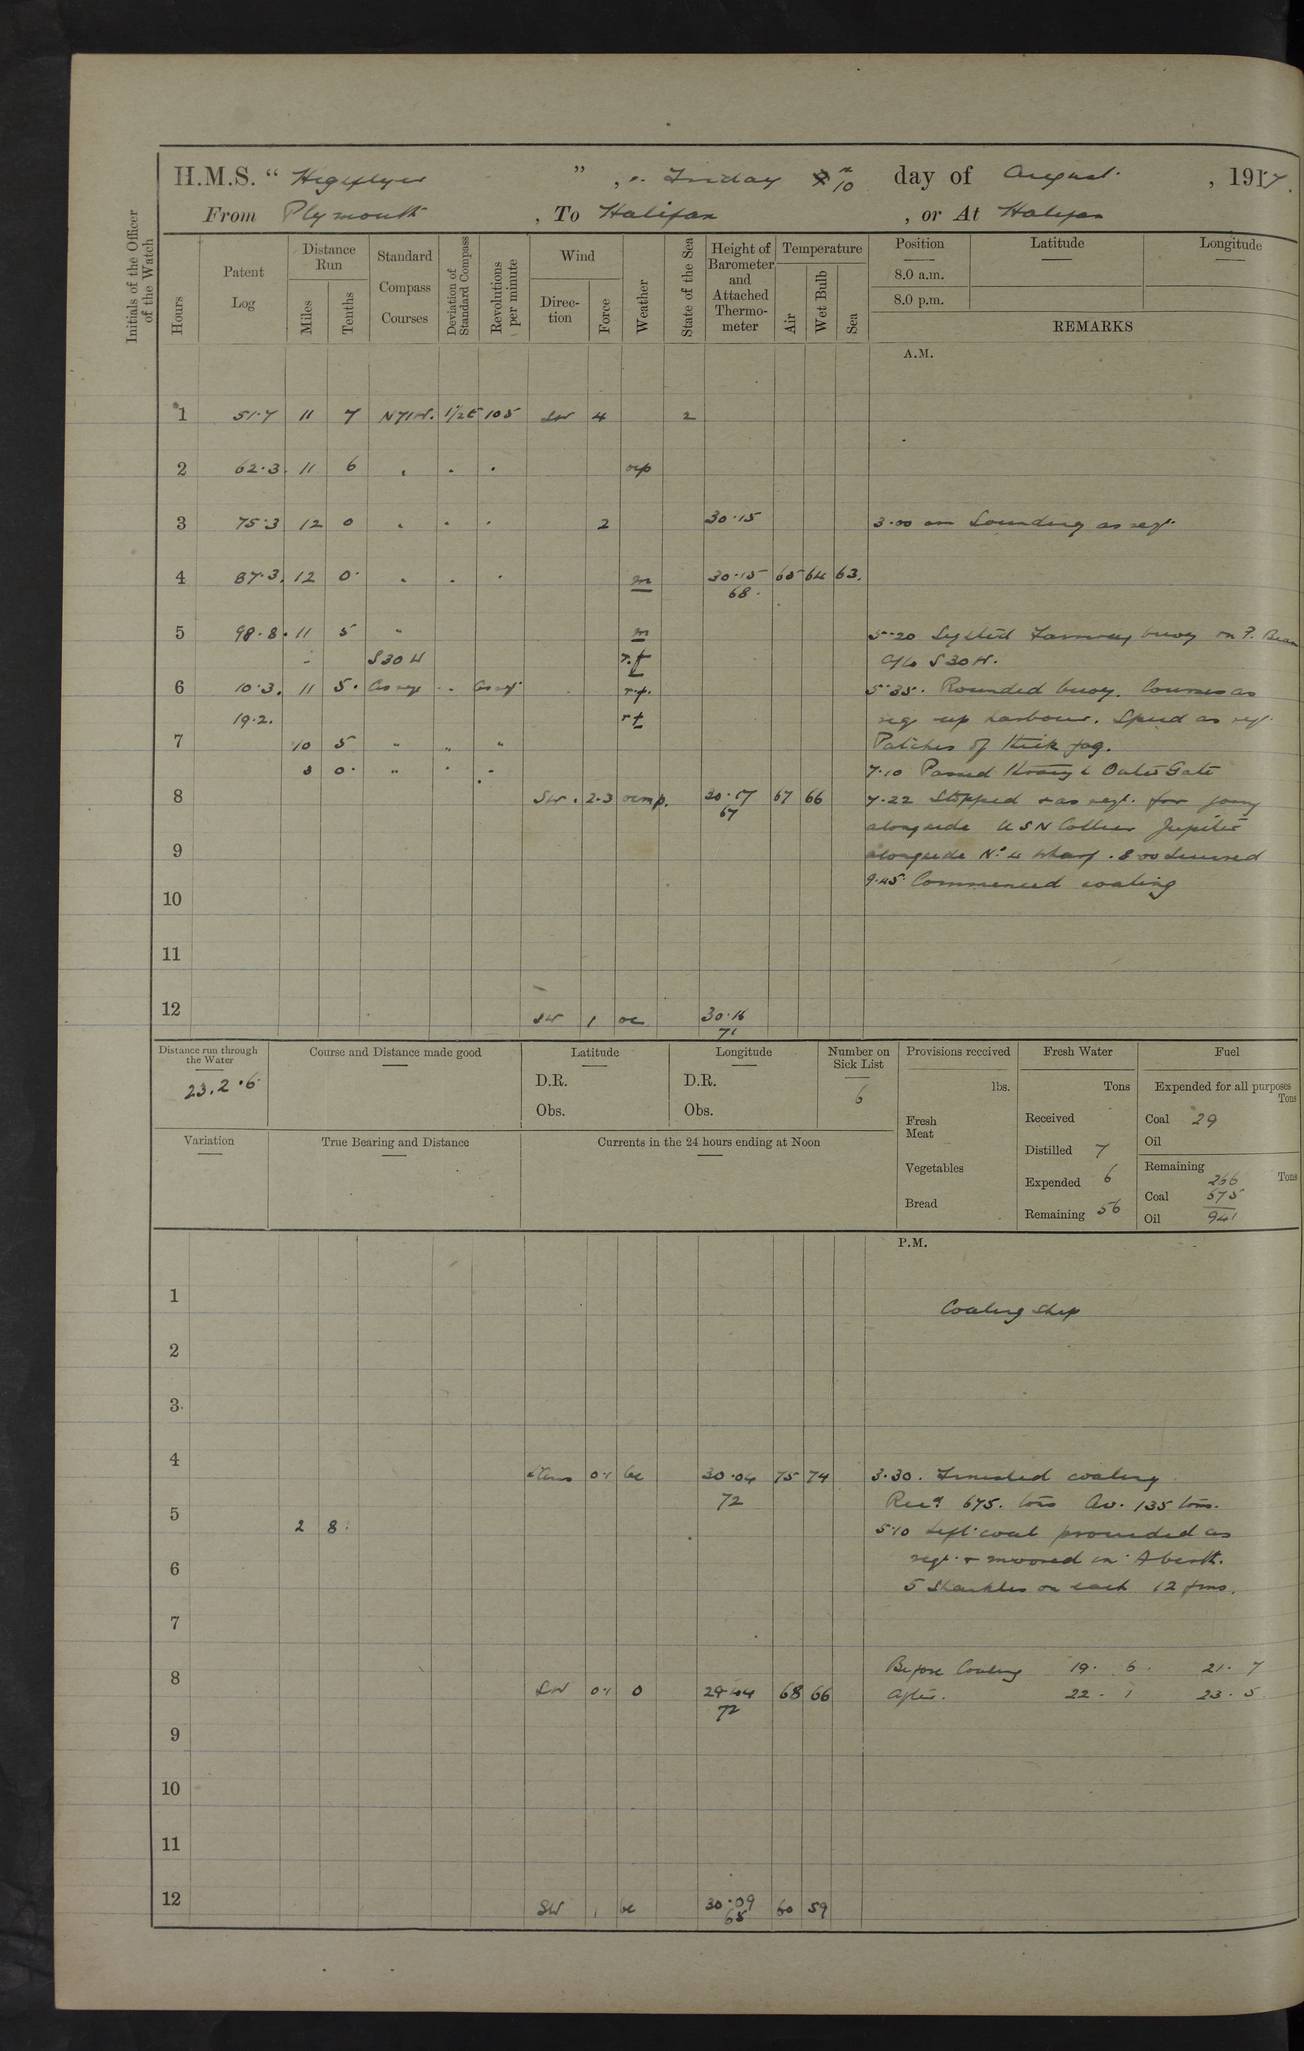 H.M.S. “ Higeflyer ” , Friday 10th day of August , 1917.
From Plymouth , To Halifax , or At Halifax
Initials of the Officer of the Watch
Hours
Patent Log
Distance Run
Miles
Tenths
Standard Compass Courses
Deviation of Standard Compass
Revolutions per minute
Wind
Direc-tion
Force
Weather
State of the Sea
Height of Barometer and Attached Thermo-meter
Temperature
Air
Wet Bulb
Sea
Position
8.0 a.m.
8.0 p.m.
Latitude
Longitude
REMARKS
A.M.
1 51.7 11 7 N71W. 1/2E 105 SW 4 2
2 62.3 11 6 " " "
3 75.3 12 0 " " " 2 30.15 3.00 am Sounding as reqt.
4 87.3 12 0 " " " m 30.15 65 64 63.
68.
5 98.8 11 5 " m 5.20 Sighted Fairway buoy on P. Beam
S30W r.f a/c S30W.
6 10.3. 11 5. As req " As reqt 5.35. Rounded buoy. Courses as
19.2. req up harbour. Speed as reqt.
7 10 5 " " " Patches of thick fog.
3 0. " " " 7.10 Passed through Outer Gate
8 SW. 2.3 ocmp. 30.17 67 66 7.22 Stopped & as reqt. for going
67
alongside USN Collier Jupiter
9 alongside No. 4 Wharf. 8.00 Secured
9.45 Commenced coaling
10
11
12 SW 1 oc 30.16
71
Distance run through the Water
23.2.6
Course and Distance made good
Latitude
D.R.
Obs.
Longitude
D.R.
Obs.
Number on Sick List
6
Provisions received
lbs.
Fresh Meat
Vegetables
Bread
Fresh Water
Tons
Received
Distilled 7
Expended 6
Remaining 56
Fuel
Expended for all purposes
Tons
Coal 29
Oil
Remaining
Tons
266
Coal 675
Oil 941
Variation
True Bearing and Distance
Currents in the 24 hours ending at Noon
P.M.
1 Coaling ship
2
3
4 0.1 bc 30.04 75 74 3.30. Finished coaling
72 Recd. 675. tons Av. 135 tons.
5 2 8 5.10 Left coal proceeded as
6 reqt. & moored in A berth.
5 Shackles on each 12 fms.
7
Before Coaling 19. 6. 21. 7
8 SW 0.1 0 68 66 After. 22. 1 23. 5
72
9
10
11
12 SW 1 bc 30.09 60 59
65